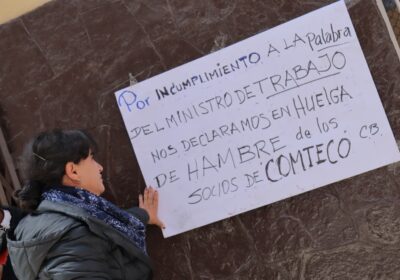 Por INCUMPLIMIENTO A LA Palabra
DEL MINISTRO DE TRABAJO
NOS DECLARAMOS EN HUELGA
DE HAMBRE de los
SOCIOS DE COMTECO. CB.